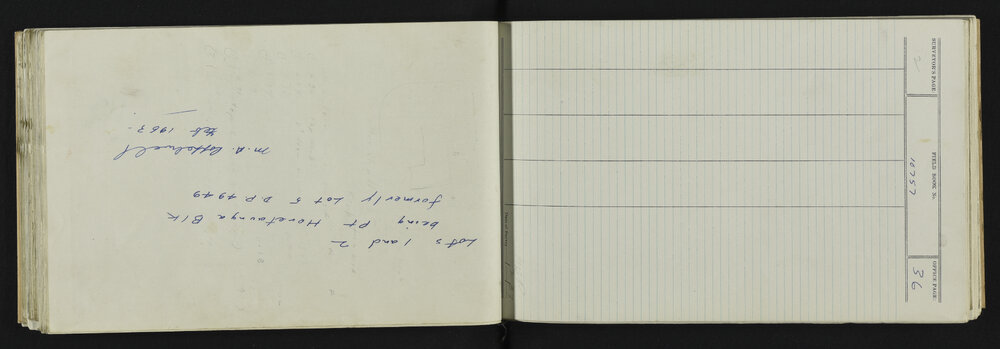 Lots 1 and 2
being Pt Heretaunga Blk
formerly Lot 5 D.P 4949
M.A.
Feb 1957.
SURVEYOR'S PAGE
2
FIELD BOOK No.
10757
OFFICE PAGE.
36